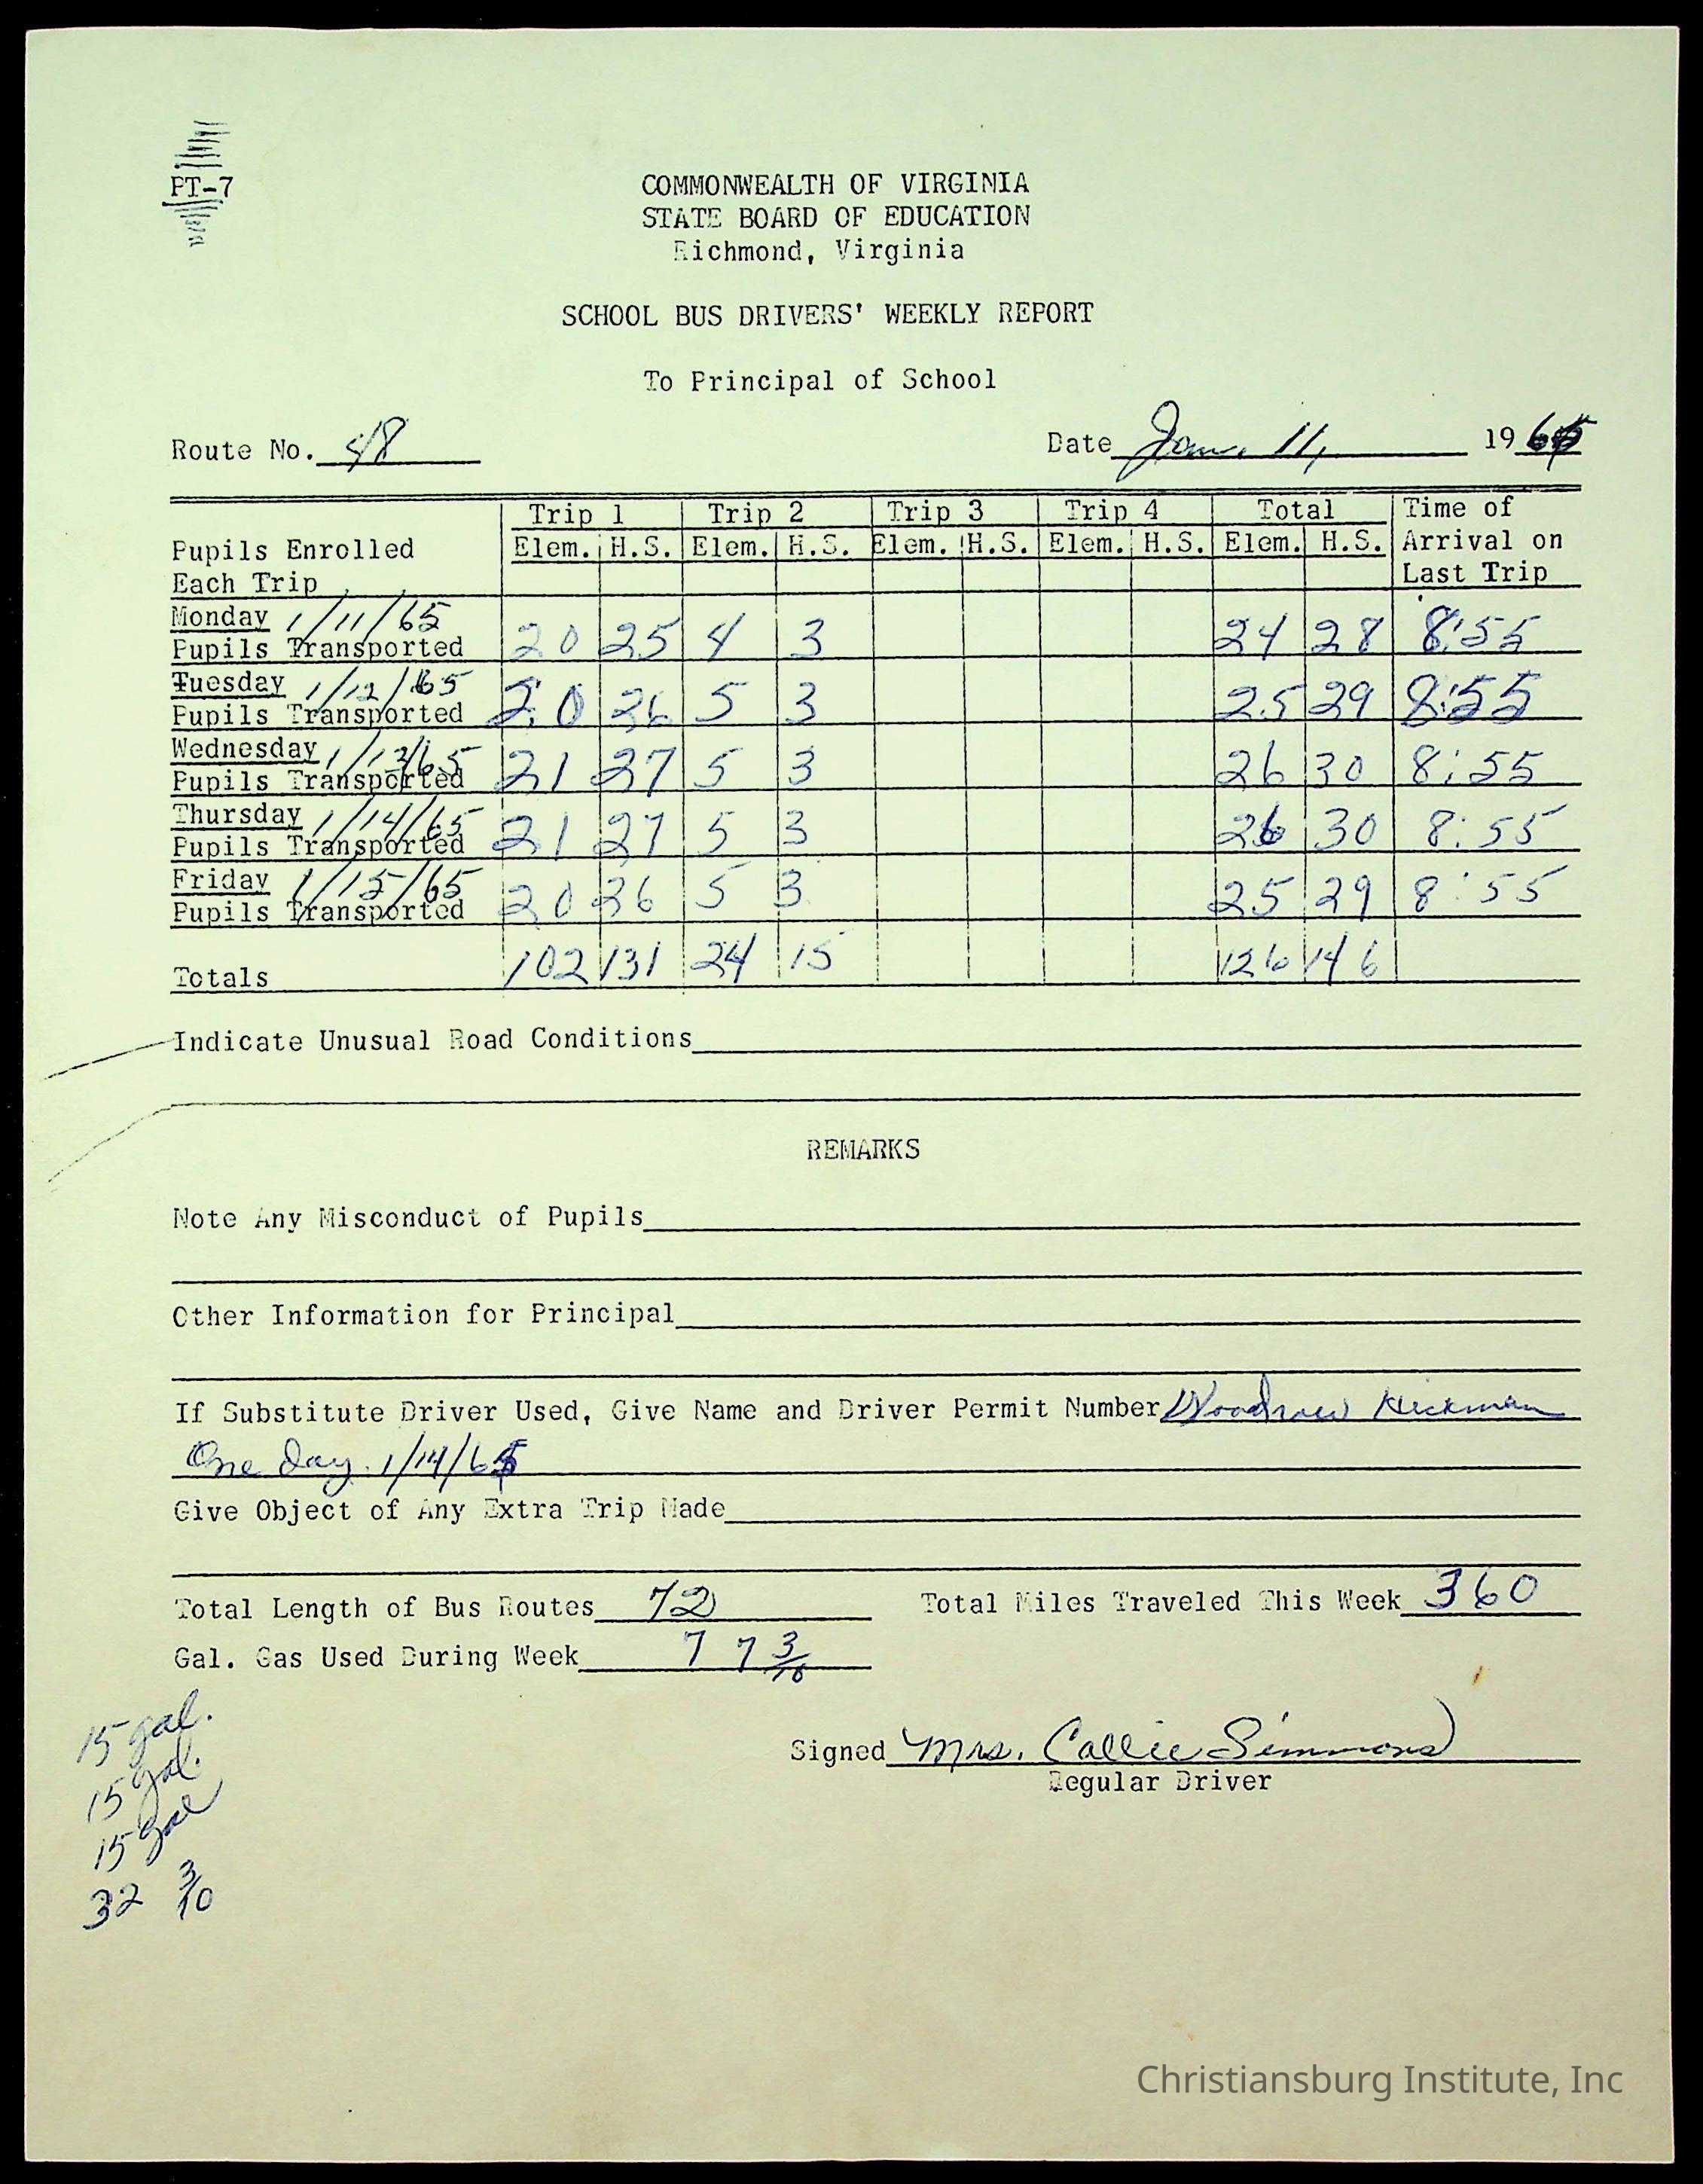 PT-7
COMMONWEALTH OF VIRGINIA
STATE BOARD OF EDUCATION
Richmond, Virginia
SCHOOL BUS DRIVERS' WEEKLY REPORT
To Principal of School
Route No. 48 Date Jan. 11, 1965
Trip 1 Trip 2 Trip 3 Trip 4 Total Time of
Pupils Enrolled Elem. H.S. Elem. H.S. Elem. H.S. Elem. H.S. Elem. H.S. Arrival on
Each Trip Last Trip
Monday 1/11/65
Pupils Transported 20 25 4 3 24 28 8:55
Tuesday 1/12/65
Pupils Transported 20 26 5 3 25 29 8:55
Wednesday 1/13/65
Pupils Transported 21 27 5 3 26 30 8:55
Thursday 1/14/65
Pupils Transported 21 27 5 3 26 30 8:55
Friday 1/15/65
Pupils Transported 20 26 5 3 25 29 8:55
Totals 102 131 24 15 126 146
Indicate Unusual Road Conditions
REMARKS
Note Any Misconduct of Pupils
Other Information for Principal
If Substitute Driver Used, Give Name and Driver Permit Number Woodrow Hickman
One day. 1/14/65
Give Object of Any Extra Trip Made
Total Length of Bus Routes 72 Total Miles Traveled This Week 360
Gal. Gas Used During Week 77 3/10
15 gal.
15 gal.
15 gal
32 3/10
Signed Mrs. Callie Simmons
Regular Driver
Christiansburg Institute, Inc